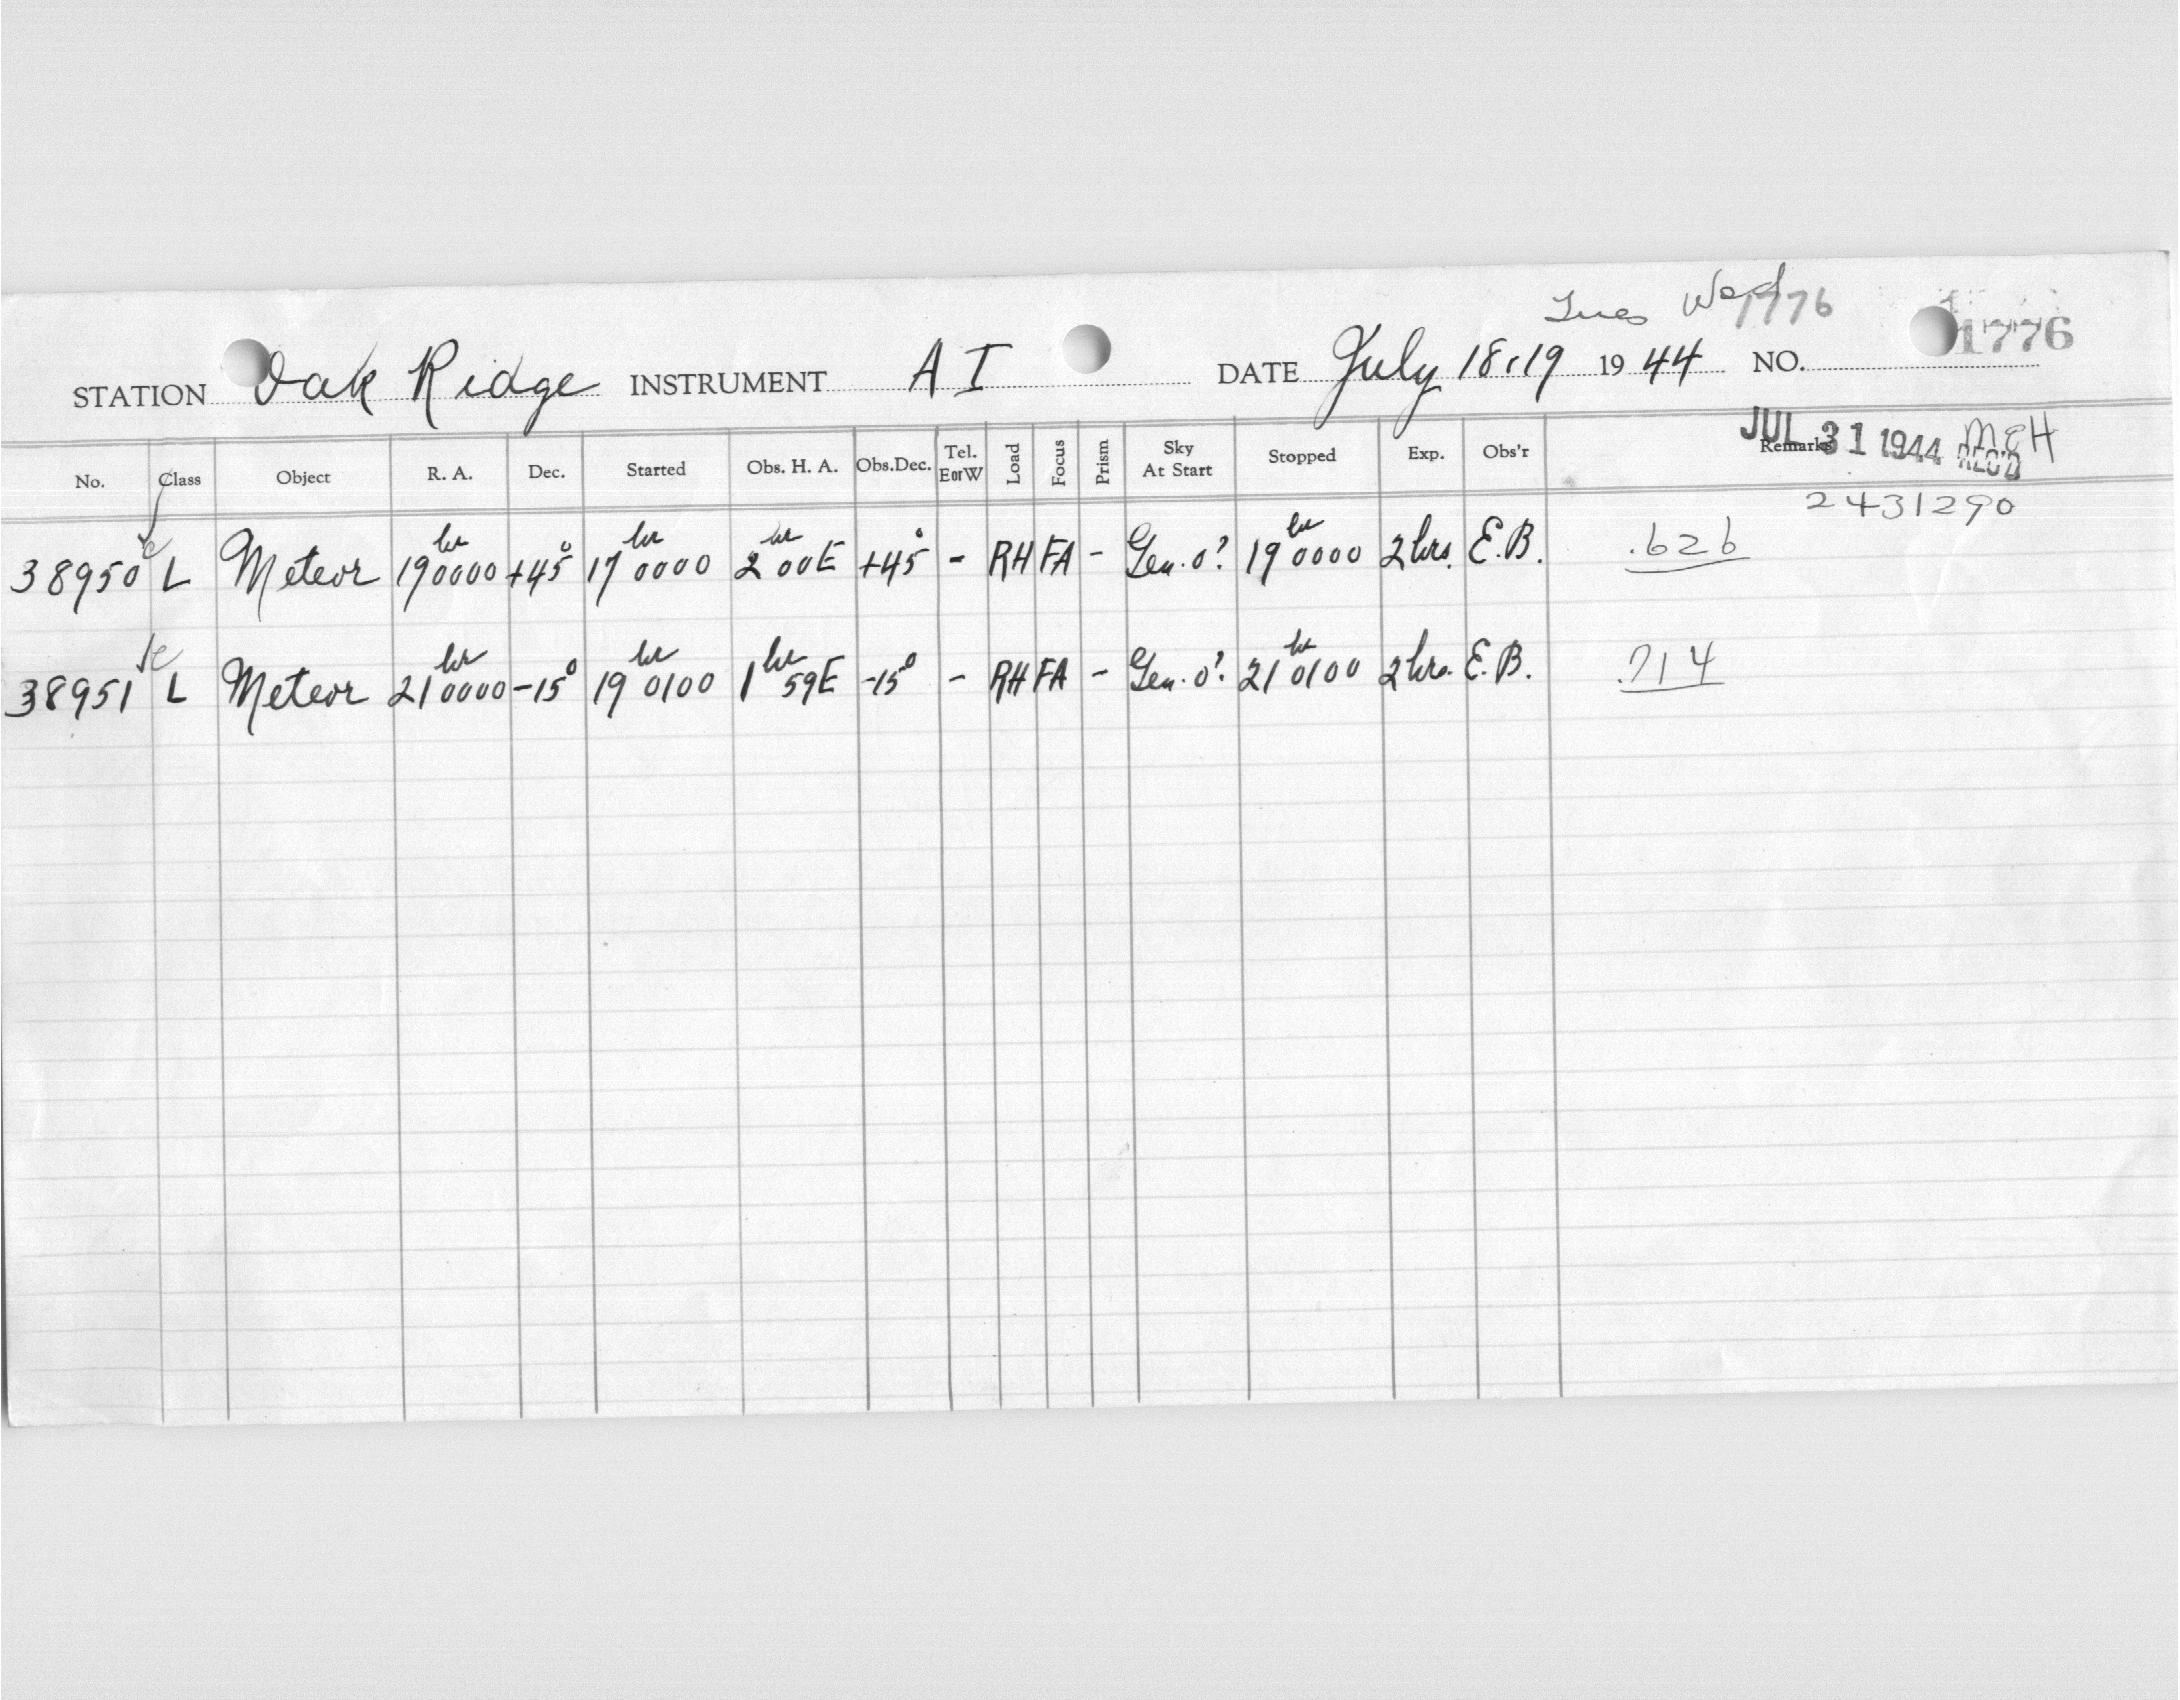 Tues Wed 1776
STATION Oak Ridge INSTRUMENT A I DATE July 18-19 1944 NO. 1776
JUL 31 1944 REC'D MEH
No. Class Object R. A. Dec. Started Obs. H. A. Obs.Dec. Tel. E or W Load Focus Prism Sky At Start Stopped Exp. Obs'r Remarks
2431290
38950 c L Meteor 19 hr 0000 +45° 17 hr 0000 2 hr 00E +45° - RH FA - Gen. 0? 19 hr 0000 2 hrs. E.B. .626
38951 c L Meteor 21 hr 0000 -15° 19 hr 0100 1 hr 59E -15° - RH FA - Gen. 0? 21 hr 0100 2 hrs. E.B. .714